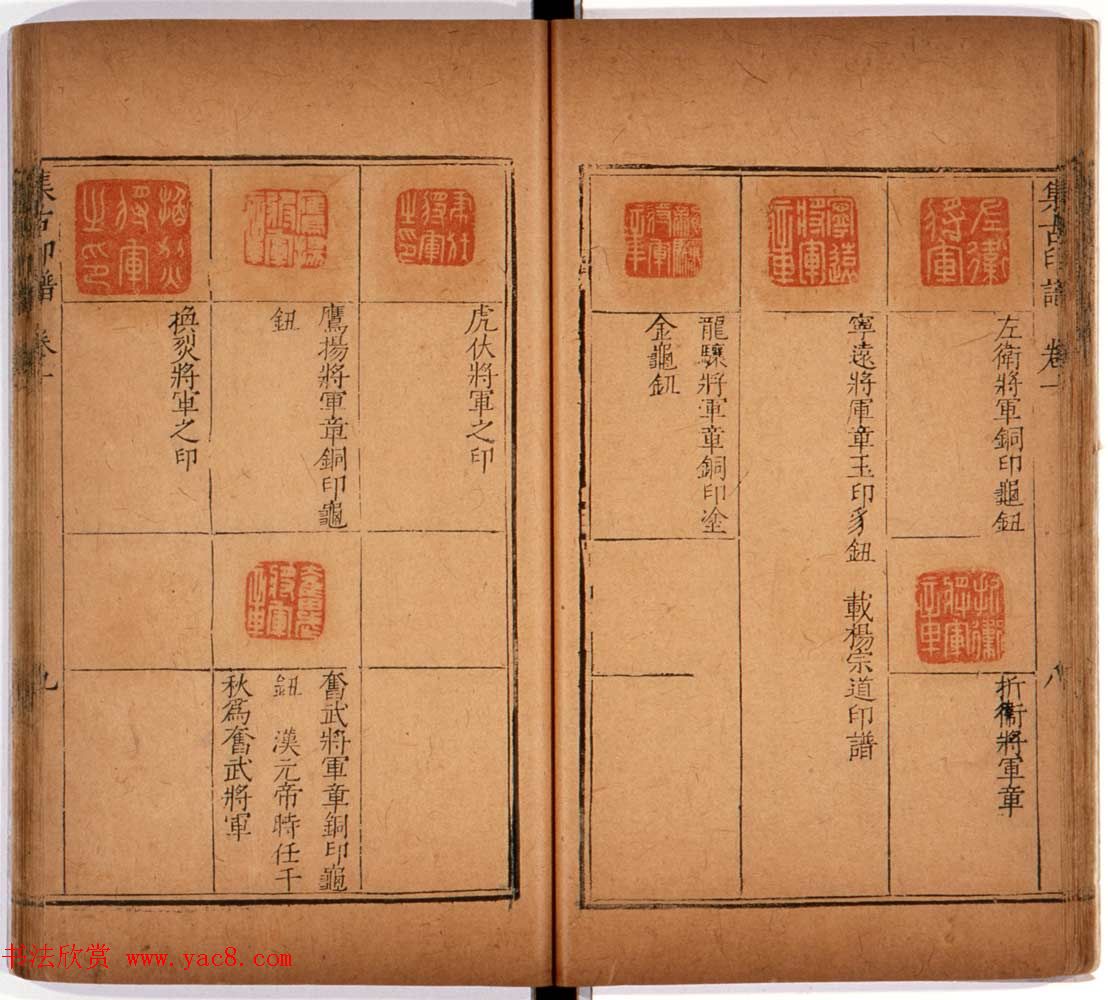 集古印譜 卷一
八
左衛將軍
左衛將軍銅印龜鈕
折衝將軍章
寧遠將軍章
寧遠將軍章玉印豸鈕 載楊宗道印譜
龍驤將軍章銅印塗
金龜鈕
虎伏將軍之印
鷹揚將軍章
鷹揚將軍章銅印龜
鈕
奮武將軍章銅印龜
鈕 漢元帝時任千
秋為奮武將軍
將軍之印
集古印譜 卷一
九
书法欣赏 www.yac8.com